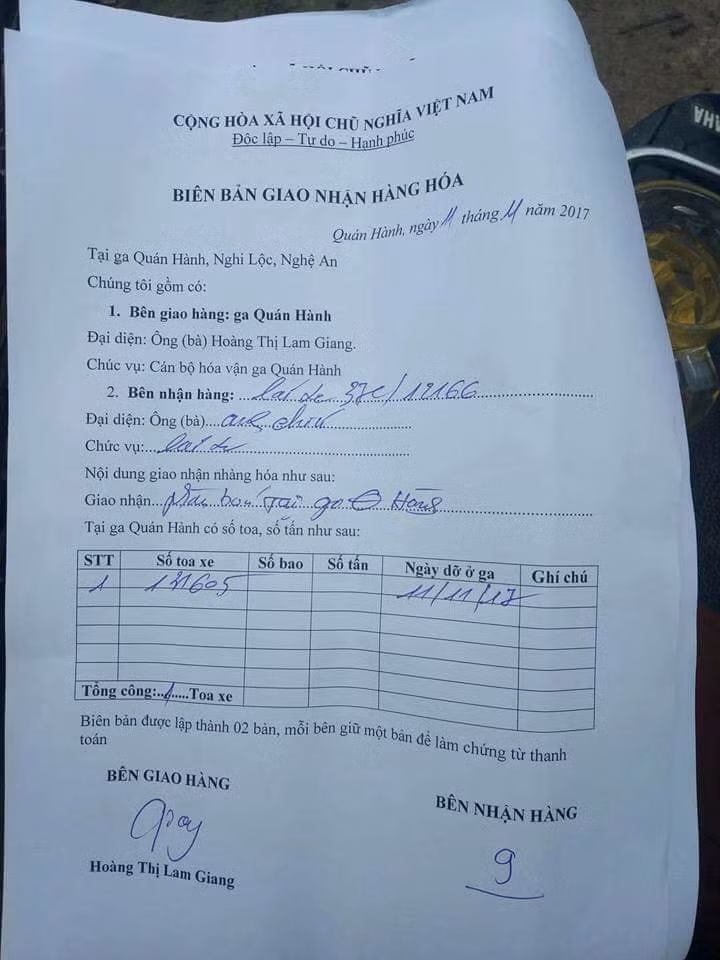 CỘNG HÒA XÃ HỘI CHŨ NGHĨA VIỆT NAM
Độc lập – Tự do – Hạnh phúc
BIÊN BẢN GIAO NHẬN HÀNG HÓA
Quán Hành, ngày 11 tháng 11 năm 2017
Tại ga Quán Hành, Nghi Lộc, Nghệ An
Chúng tôi gồm có:
1. Bên giao hàng: ga Quán Hành
Đại diện: Ông (bà) Hoàng Thị Lam Giang.
Chúc vụ: Cán bộ hóa vận ga Quán Hành
2. Bên nhận hàng: ...lái xe 37C/12166
Đại diện: Ông (bà)....anh
Chức vụ:....lái xe
Nội dung giao nhận nhàng hóa như sau:
Giao nhận...phân bón tại ga
Tại ga Quán Hành có số toa, số tấn như sau:
STT Số toa xe Số bao Số tấn Ngày dỡ ở ga Ghí chú
1 131605 11/11/17
Tổng cộng:..1.....Toa xe
Biên bản được lập thành 02 bản, mỗi bên giữ một bản để làm chứng từ thanh
toán
BÊN GIAO HÀNG
BÊN NHẬN HÀNG
Hoàng Thị Lam Giang
YAMAHA